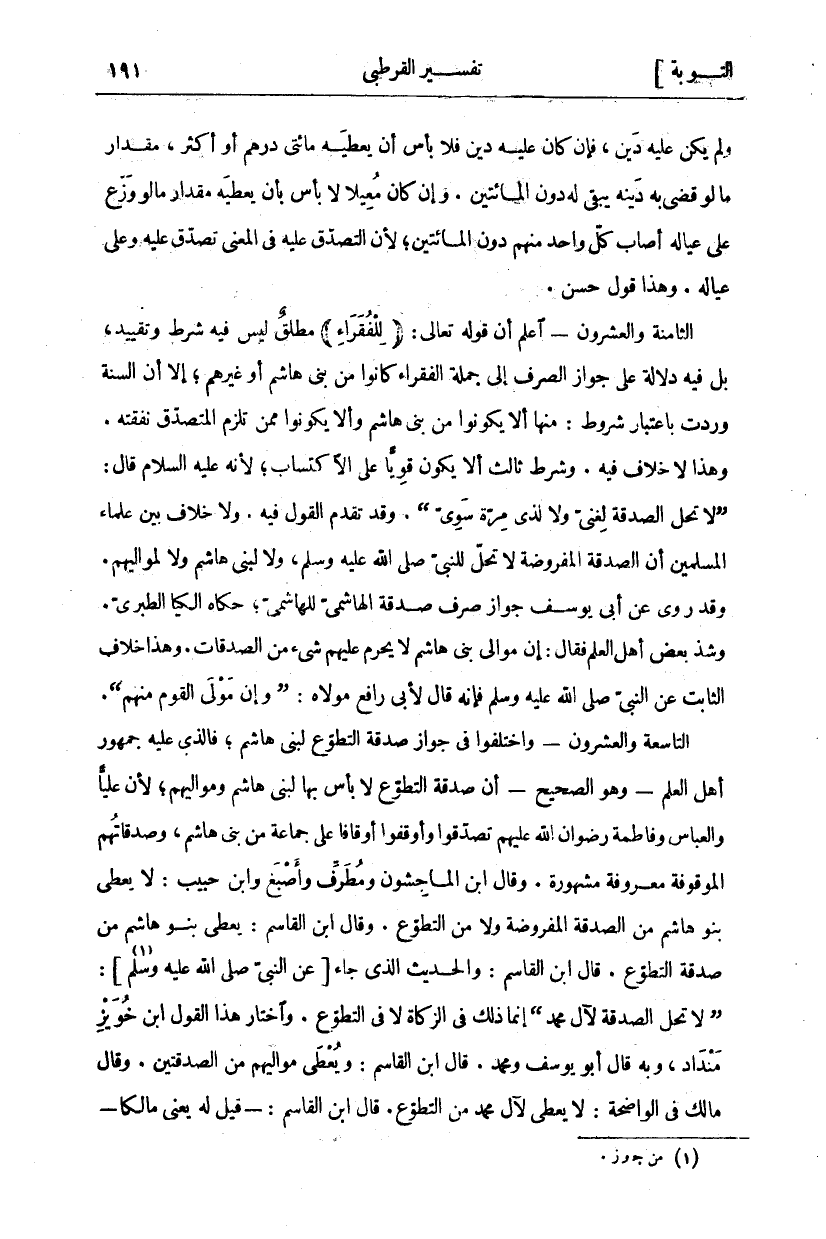 التــوبة ] تفســير القرطبى ١٩١
ولم يكن عليه دَين ، فإن كان عليــه دين فلا بأس أن يعطيَــه مائتى درهم أو أكثر ، مقــدار
ما لو قضى به دَينه يبقى له دون المــائتين . وإن كان مُعِيلا لا بأس بأن يعطيَه مقدار مالو وَزَّع
على عياله أصاب كلّ واحد منهم دون المــائتين؛ لأن التصدّق عليه فى المعنى تصدّق عليه وعلى
عياله . وهذا قول حسن .
الثامنة والعشرون — ٱعلم أن قوله تعالى: ﴿ لِلْفُقَرَاءِ ﴾ مطلقٌ ليس فيه شرط وتقييد،
بل فيه دلالة على جواز الصرف إلى جملة الفقراء كانوا من بنى هاشم أو غيرهم ؛ إلا أن السنة
وردت باعتبار شروط : منها ألا يكونوا من بنى هاشم وألا يكونوا ممن تلزم المتصدّق نفقته .
وهذا لا خلاف فيه . وشرط ثالث ألا يكون قويًّا على الاكتساب؛ لأنه عليه السلام قال:
”لا تحل الصدقة لِغنىّ ولا لذى مِرّة سَوِىّ “ . وقد تقدم القول فيه . ولا خلاف بين علماء
المسلمين أن الصدقة المفروضة لا تحلّ للنبىّ صلى الله عليه وسلم، ولا لبنى هاشم ولا لمواليهم.
وقد روى عن أبى يوســف جواز صرف صــدقة الهاشمىّ للهاشمىّ؛ حكاه الكيا الطبرىّ.
وشذ بعض أهل العلم فقال : إن موالى بنى هاشم لا يحرم عليهم شىء من الصدقات. وهذا خلاف
الثابت عن النبىّ صلى الله عليه وسلم فإنه قال لأبى رافع مولاه : ” وإن مَوْلَى القوم منهم“.
التاسعة والعشرون — واختلفوا فى جواز صدقة التطوّع لبنى هاشم ؛ فالذى عليه جمهور
أهل العلم — وهو الصحيح — أن صدقة التطوّع لا بأس بها لبنى هاشم ومواليهم؛ لأن عليًّا
والعباس وفاطمة رضوان الله عليهم تصدّقوا وأوقفوا أوقافا على جماعة من بنى هاشم ، وصدقاتُهم
الموقوفة معــروفة مشهورة . وقال ابن المــاجِشون ومُطَرِّف وأَصْبَغ وابن حبيب : لا يعطى
بنو هاشم من الصدقة المفروضة ولا من التطوّع . وقال ابن القاسم : يعطى بنــو هاشم من
صدقة التطوّع . قال ابن القاسم : والحــديث الذى جاء [ عن النبىّ صلى الله عليه وسلم ](١) :
” لا تحل الصدقة لآل محمد “ إنما ذلك فى الزكاة لا فى التطوّع . وٱختار هذا القول ابن خُوَيْزِ
مَنْدَاد ، وبه قال أبو يوسف ومحمد . قال ابن القاسم : ويُعْطَى مواليهم من الصدقتين . وقال
مالك فى الواضحة : لا يعطى لآل محمد من التطوّع. قال ابن القاسم : — قيل له يعنى مالكا—
(١) من جوز .